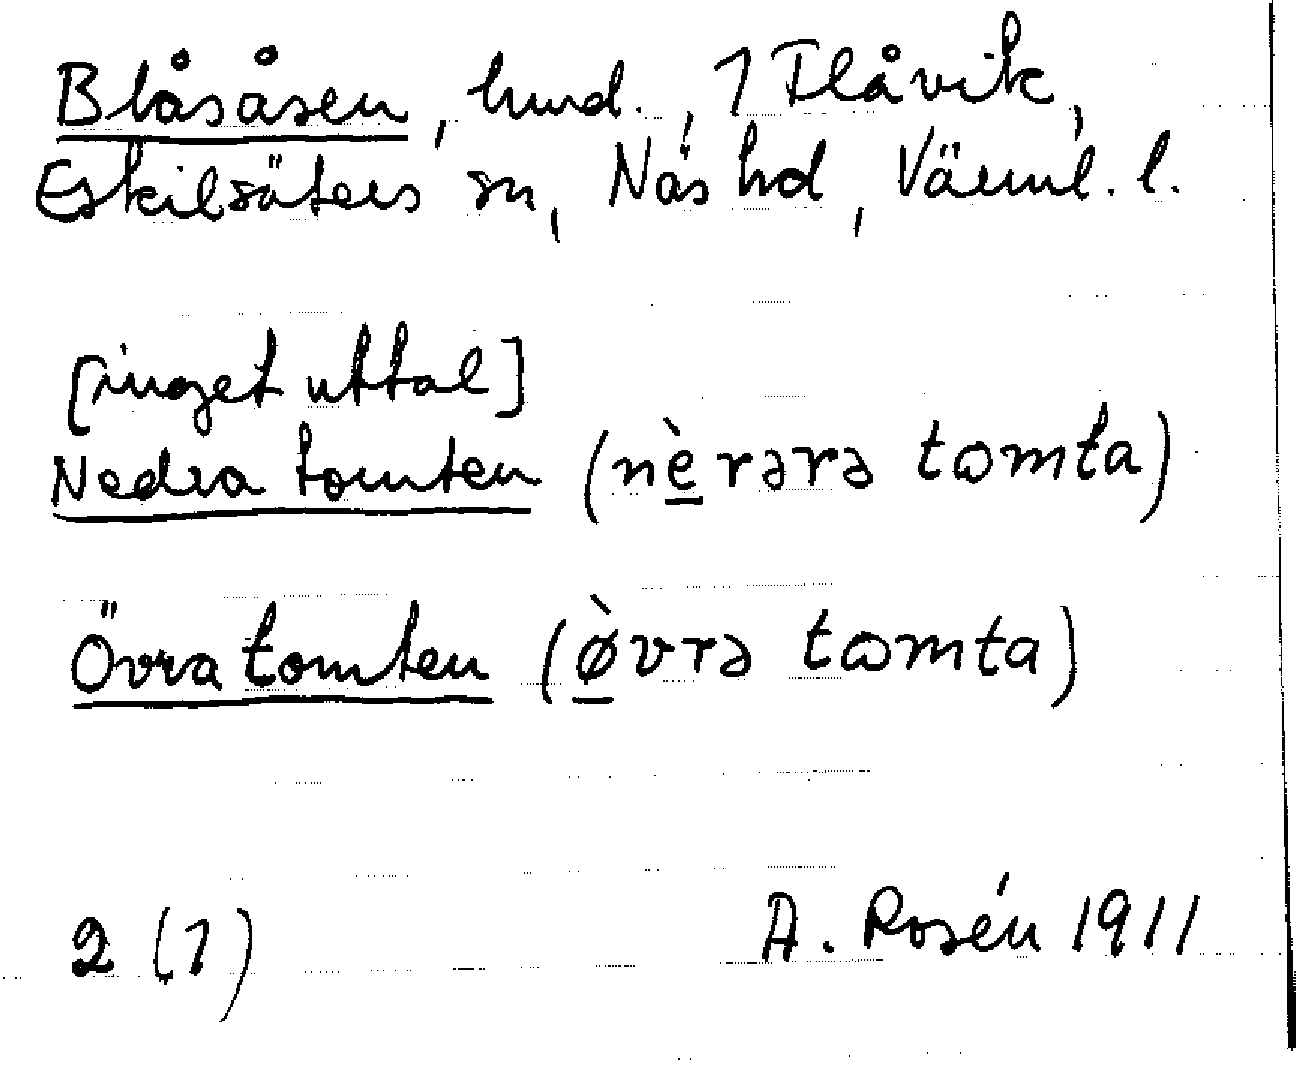 Blåsåsen, hmd., 1 Flåvik,
Eskilsäters sn, Näs hd, Värml. l.
[inget uttal]
Nedra tomten (nè̲rərə tɷmta)
Övra tomten (ø̲̀vrə tɷmta)
2 (1)
A. Rosén 1911